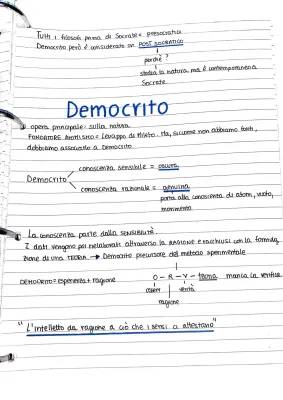 Tutti i filosofi prima di Socrate = presocratici
Democrito però è considerato un POST SOCRATICO
perché?
studia la natura ma è contemporaneo a
Socrate
Democrito
opera principale: sulla natura.
FONDATORE ATOMISMO = Leucippo di Mileto. Ma, siccome non abbiamo fonti,
dobbiamo associarlo a Democrito
conoscenza sensibile = oscura
Democrito
conoscenza razionale = genuina
porta alla conoscenza di atomi, vuoto,
movimento
La conoscenza parte dalla SENSIBILITÀ.
I dati vengono poi rielaborati attraverso la RAGIONE e racchiusi con la formula
zione di una TEORIA → Democrito precursore del metodo sperimentale
DEMOCRITO = esperienza + ragione
O - R - V - teoria manca la verifica
verità
ragione
"L'intelletto dà ragione a ciò che i sensi ci attestano"